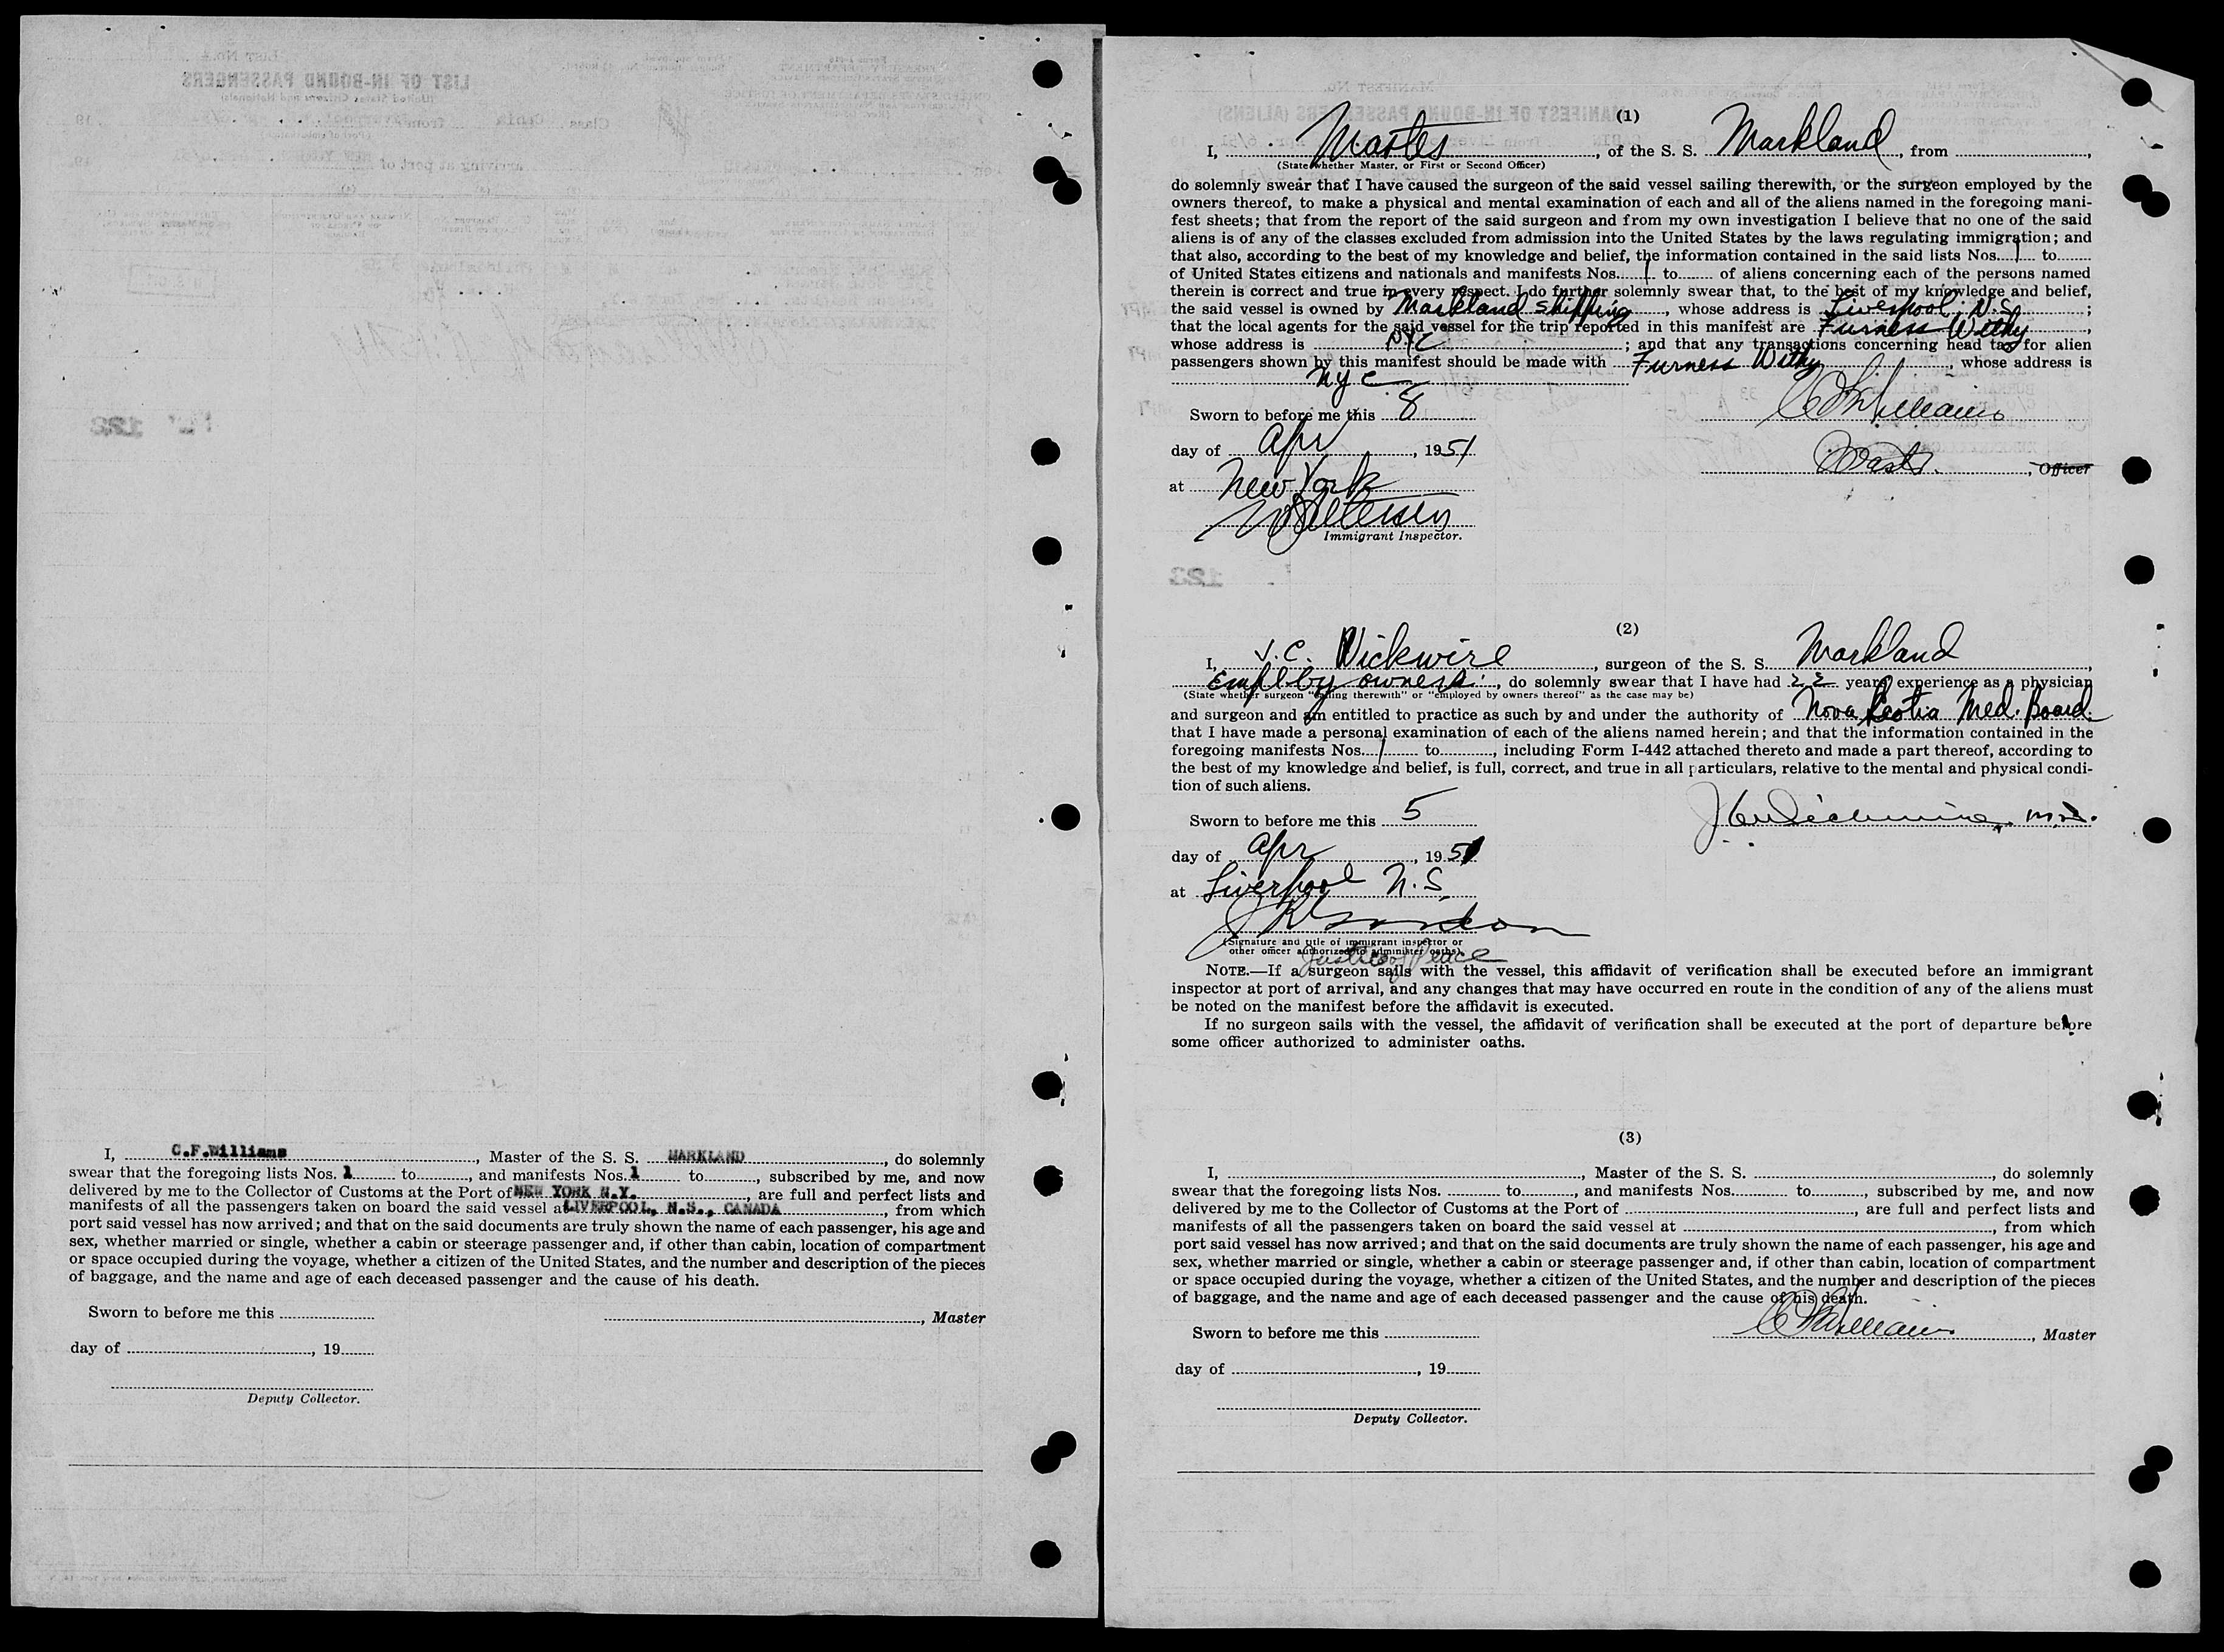 I, C.F.Williams, Master of the S. S. MARKLAND, do solemnly
swear that the foregoing lists Nos. 1 to, and manifests Nos. 1 to, subscribed by me, and now
delivered by me to the Collector of Customs at the Port of NEW YORK N.Y., are full and perfect lists and
manifests of all the passengers taken on board the said vessel at LIVERPOOL, N.S., CANADA, from which
port said vessel has now arrived; and that on the said documents are truly shown the name of each passenger, his age and
sex, whether married or single, whether a cabin or steerage passenger and, if other than cabin, location of compartment
or space occupied during the voyage, whether a citizen of the United States, and the number and description of the pieces
of baggage, and the name and age of each deceased passenger and the cause of his death.
Sworn to before me this
, Master
day of , 19
Deputy Collector.
(1)
I, Master, of the S. S. Markland, from ,
(State whether Master, or First or Second Officer)
do solemnly swear that I have caused the surgeon of the said vessel sailing therewith, or the surgeon employed by the
owners thereof, to make a physical and mental examination of each and all of the aliens named in the foregoing mani-
fest sheets; that from the report of the said surgeon and from my own investigation I believe that no one of the said
aliens is of any of the classes excluded from admission into the United States by the laws regulating immigration; and
that also, according to the best of my knowledge and belief, the information contained in the said lists Nos. 1 to
of United States citizens and nationals and manifests Nos. 1 to of aliens concerning each of the persons named
therein is correct and true in every respect. I do further solemnly swear that, to the best of my knowledge and belief,
the said vessel is owned by Markland Shipping, whose address is Liverpool, N.S.;
that the local agents for the said vessel for the trip reported in this manifest are Furness Withy,
whose address is NYC; and that any transactions concerning head tax for alien
passengers shown by this manifest should be made with Furness Withy, whose address is
NYC
Sworn to before me this 8
CF Williams
day of Apr, 1951
Master, Officer
at New York
Immigrant Inspector.
(2)
I, J. C. Wickwire, surgeon of the S. S. Markland,
Empl by owners, do solemnly swear that I have had 22 years experience as a physician
(State whether surgeon "sailing therewith" or "employed by owners thereof" as the case may be)
and surgeon and am entitled to practice as such by and under the authority of Nova Scotia Med. Board.
that I have made a personal examination of each of the aliens named herein; and that the information contained in the
foregoing manifests Nos. 1 to, including Form I-442 attached thereto and made a part thereof, according to
the best of my knowledge and belief, is full, correct, and true in all particulars, relative to the mental and physical condi-
tion of such aliens.
Sworn to before me this 5
J C Wickwire, M.D.
day of Apr, 1951
at Liverpool N.S
(Signature and title of immigrant inspector or
other officer authorized to administer oaths)
Justice of Peace
NOTE.—If a surgeon sails with the vessel, this affidavit of verification shall be executed before an immigrant
inspector at port of arrival, and any changes that may have occurred en route in the condition of any of the aliens must
be noted on the manifest before the affidavit is executed.
If no surgeon sails with the vessel, the affidavit of verification shall be executed at the port of departure before
some officer authorized to administer oaths.
(3)
I, , Master of the S. S. , do solemnly
swear that the foregoing lists Nos. to, and manifests Nos. to, subscribed by me, and now
delivered by me to the Collector of Customs at the Port of , are full and perfect lists and
manifests of all the passengers taken on board the said vessel at , from which
port said vessel has now arrived; and that on the said documents are truly shown the name of each passenger, his age and
sex, whether married or single, whether a cabin or steerage passenger and, if other than cabin, location of compartment
or space occupied during the voyage, whether a citizen of the United States, and the number and description of the pieces
of baggage, and the name and age of each deceased passenger and the cause of his death.
Sworn to before me this
CF Williams, Master
day of , 19
Deputy Collector.